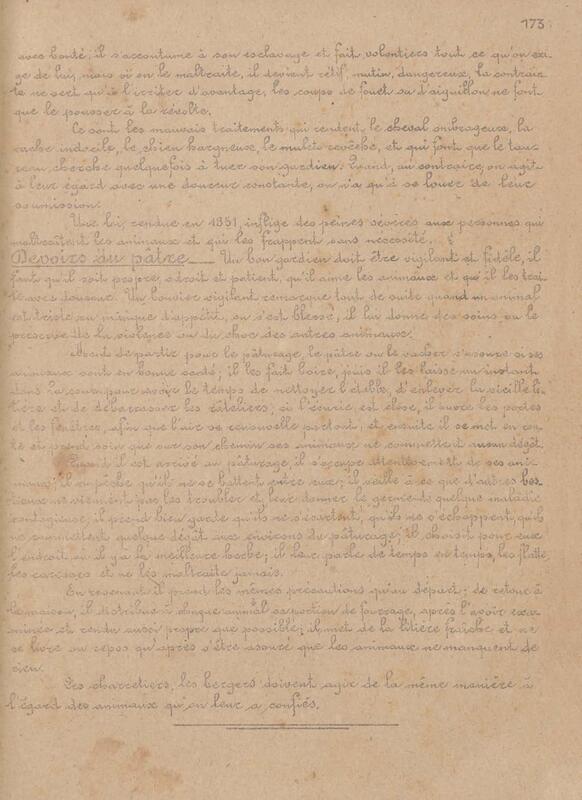 173
avec bonté il s'accoutume à son esclavage et fait volontiers tout ce qu'on exi-
ge de lui, mais où on le maltraite, il devient rétif, mutin, dangereux, la contrain-
te ne sert qu'à l'irriter d'avantage, les coups de fouet ou d'aiguillon ne font
que le pousser à la révolte.
Ce sont les mauvais traitements qui rendent le cheval ombrageux, la
vache indocile, le chien hargneux, le mulet revêche, et qui font que le tau-
reau cherche quelquefois à tuer son gardien. Quand, au contraire, on agit
à leur égard avec une douceur constante, on n'a qu'à se louer de leur
soumission.
Une loi, rendue en 1851, inflige des peines sévères aux personnes qui
maltraitent les animaux et qui les frappent sans nécessité.
Devoirs du pâtre — Un bon gardien doit être vigilant et fidèle, il
faut qu'il soit propre, adroit et patient, qu'il aime les animaux et qu'il les trai-
te avec douceur. Un bouvier vigilant remarque tout de suite quand un animal
est triste ou manque d'appétit, ou s'est blessé, il lui donne des soins ou le
préserve de la violence ou du choc des autres animaux.
Avant de partir pour le pâturage, le pâtre ou le vacher s'assure si ses
animaux sont en bonne santé; il les fait boire, puis il les laisse un instant
dans la cour pour avoir le temps de nettoyer l'étable, d'enlever la vieille li-
tière et de débarrasser les râteliers; si l'écurie est close, il ouvre les portes
et les fenêtres, afin que l'air se renouvelle partout, et ensuite il se met en rou-
te et prend soin que sur son chemin ses animaux ne commettent aucun dégât.
Quand il est arrivé au pâturage, il s'occupe attentivement de ses ani-
maux; il empêche qu'ils ne se battent entre eux; il veille à ce que d'autres bes-
tiaux ne viennent pas les troubler et leur donner le germe de quelque maladie
contagieuse; il prend bien garde qu'ils ne s'écartent, qu'ils ne s'échappent, qu'ils
ne commettent quelque dégât aux environs du pâturage; il choisit pour eux
l'endroit où il y a la meilleure herbe; il leur parle de temps en temps, les flatte,
les caresse et ne les maltraite jamais.
En revenant il prend les mêmes précautions qu'au départ; de retour à
la maison, il distribue à chaque animal sa portion de fourrage, après l'avoir exa-
minée et rendu aussi propre que possible; il met de la litière fraîche et ne
se livre au repos qu'après s'être assuré que les animaux ne manquent de
rien.
Les charretiers, les bergers doivent agir de la même manière à
l'égard des animaux qu'on leur a confiés.